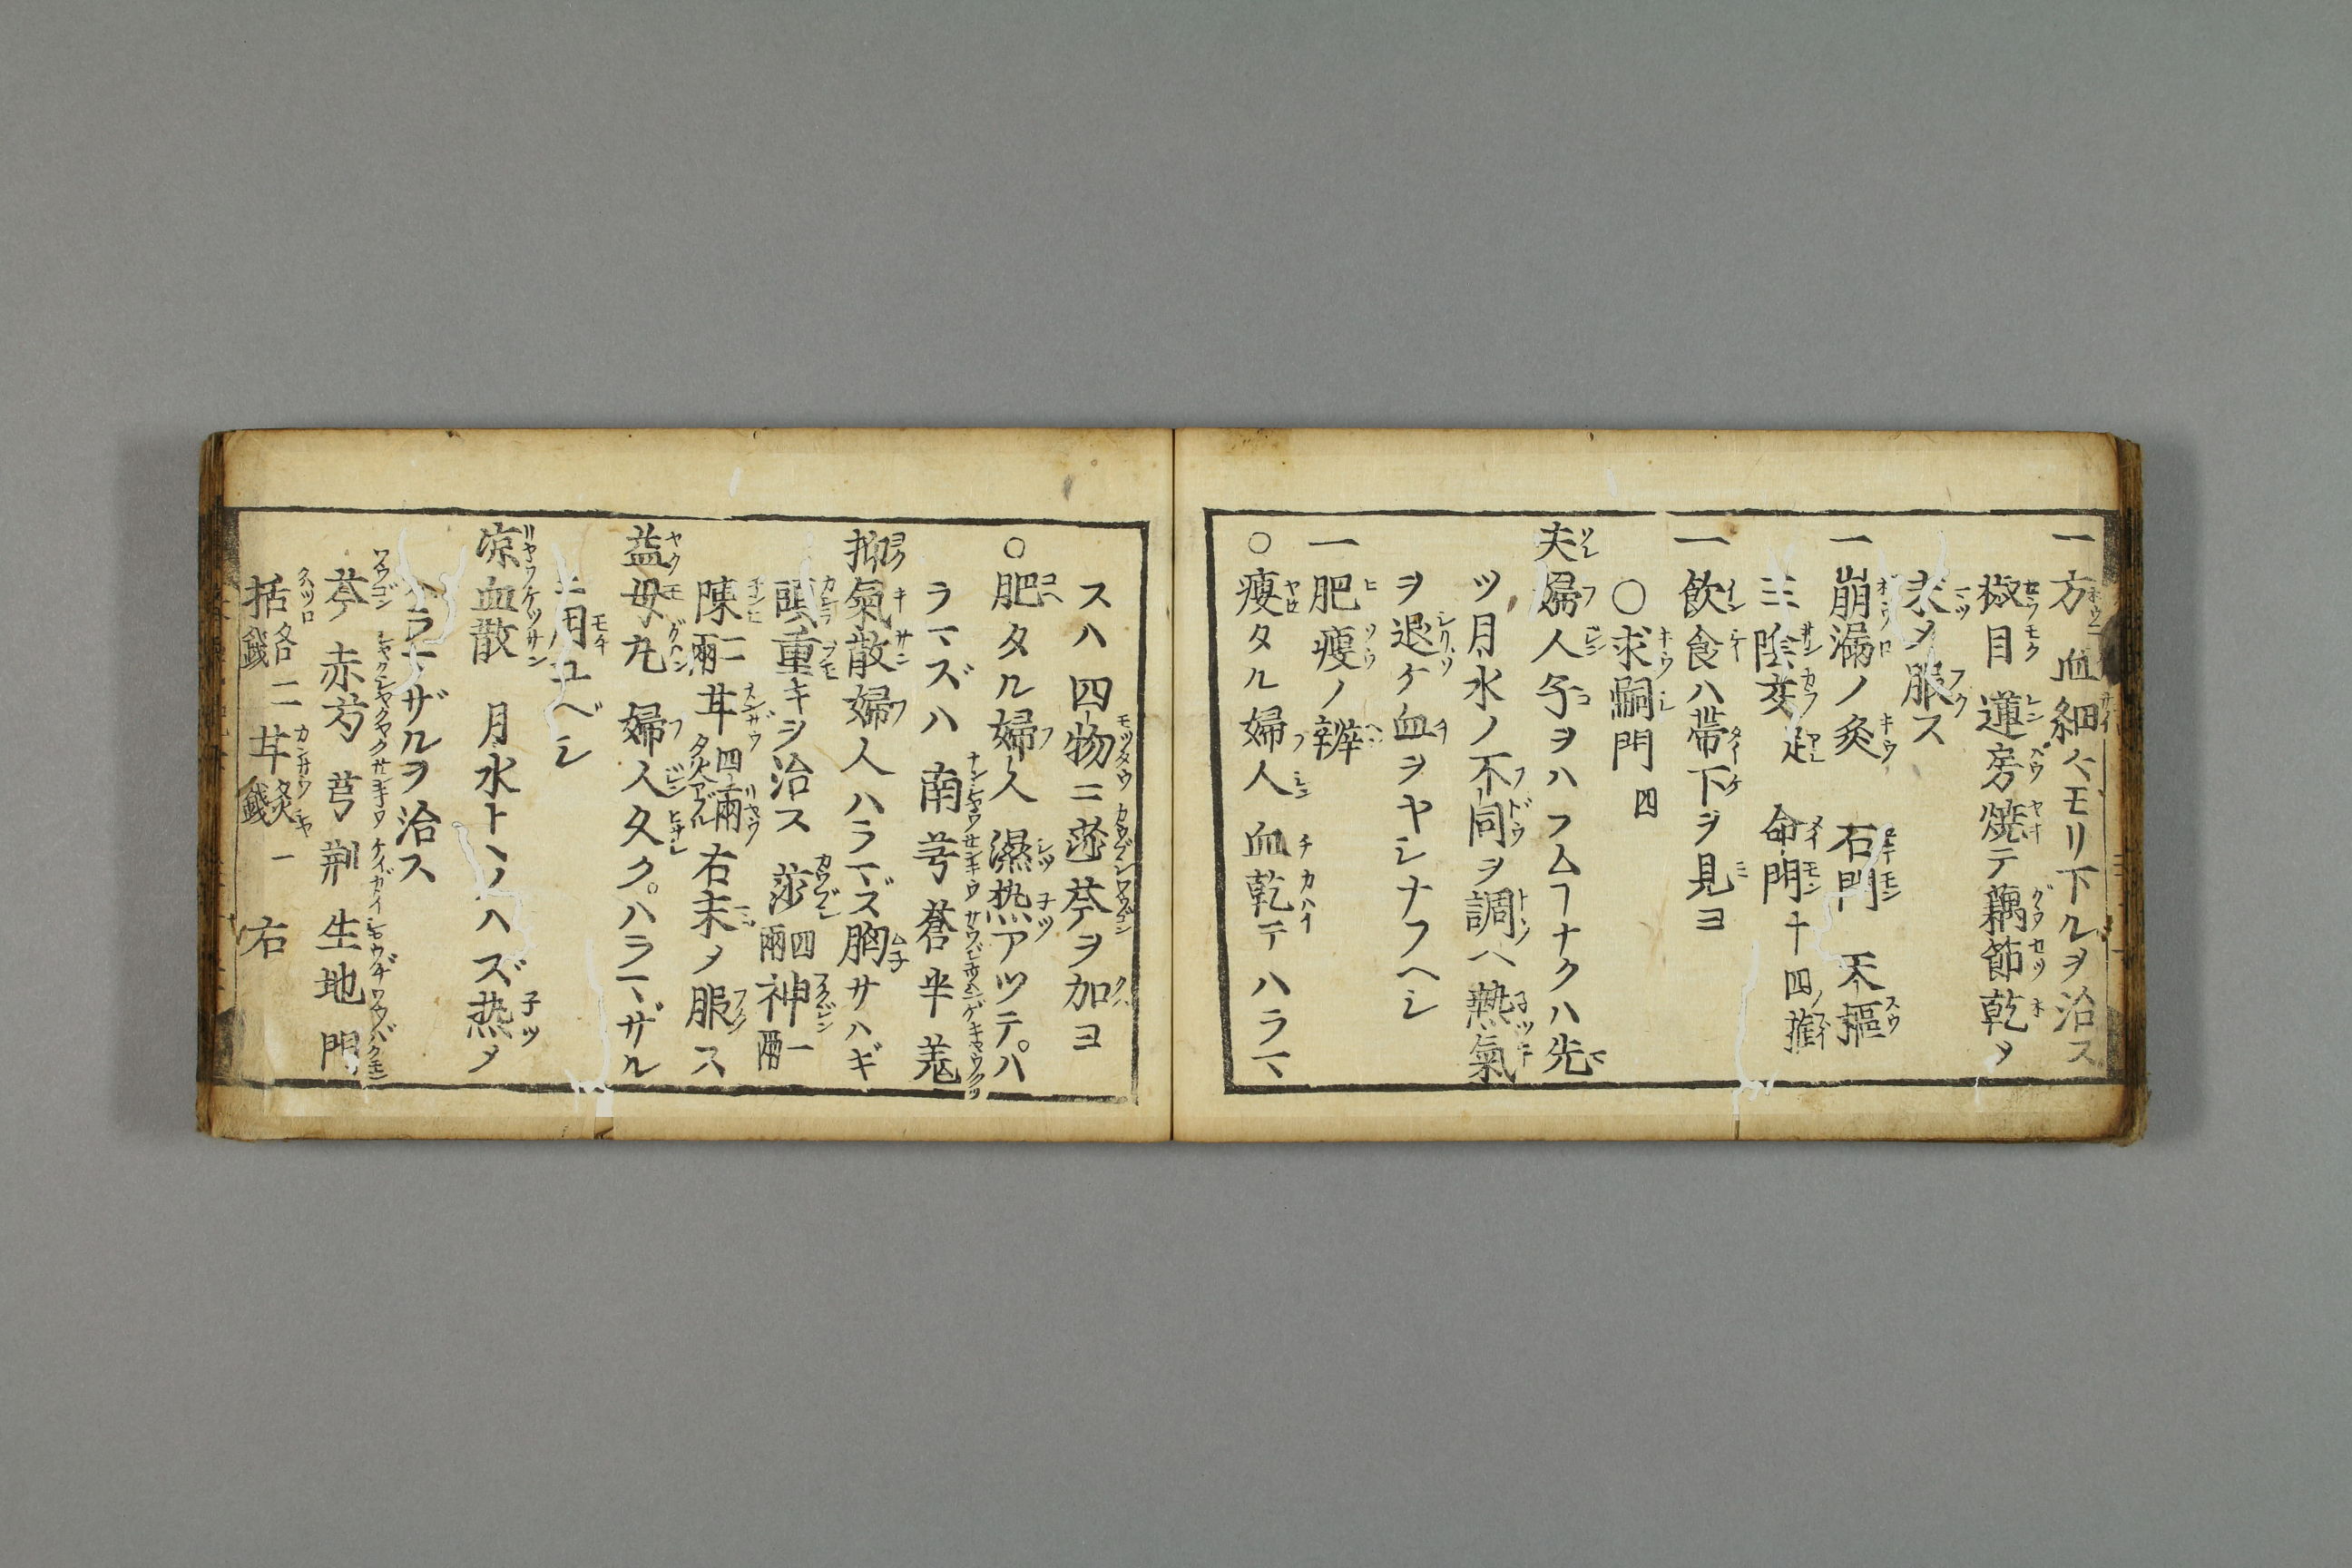 一方 血細クモリ下ルヲ治ス
椒目 蓮房焼テ藕節乾メ
末メ服ス
一崩漏ノ灸 石門 天樞
三陰交 命門 十四ノ推
一飲食ハ帶下ヲ見ヨ
〇求嗣門 四
夫婦人子ヲハフムヿナクハ先
ツ月水ノ不同ヲ調ヘ熱氣
ヲ退ケ血ヲヤシナフヘシ
一肥瘦ノ辨
〇瘦タル婦人 血乾テハラマ
スハ四物ニ莎芩ヲ加ヨ
〇肥タル婦人 濕热アツテハ
ラマズハ 南芎蒼半羌
抑氣散婦人ハラマズ胸サハギ
頭重キヲ治ス 莎四兩神一兩
陳二兩 甘四兩炙 右末メ服ス
益母丸 婦人久クハラマザル
ニ用ユベシ
凉血散 月水トヽノハズ热メ
ハラマザルヲ治ス
芩 赤芍 芎 荆 生地 門
括各二錢 甘炙一錢 右